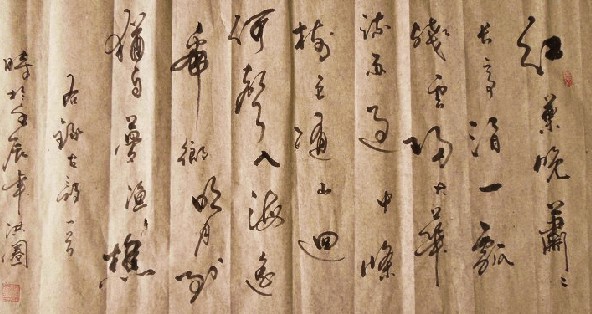 紅葉晚蕭〻
長亭酒一瓢
殘雲歸太華
疏雨過中條
樹色隨山迴
河聲入海遙
帝鄉明日到
猶自夢漁樵
右錄古詩一首
時於壬辰年洪圖